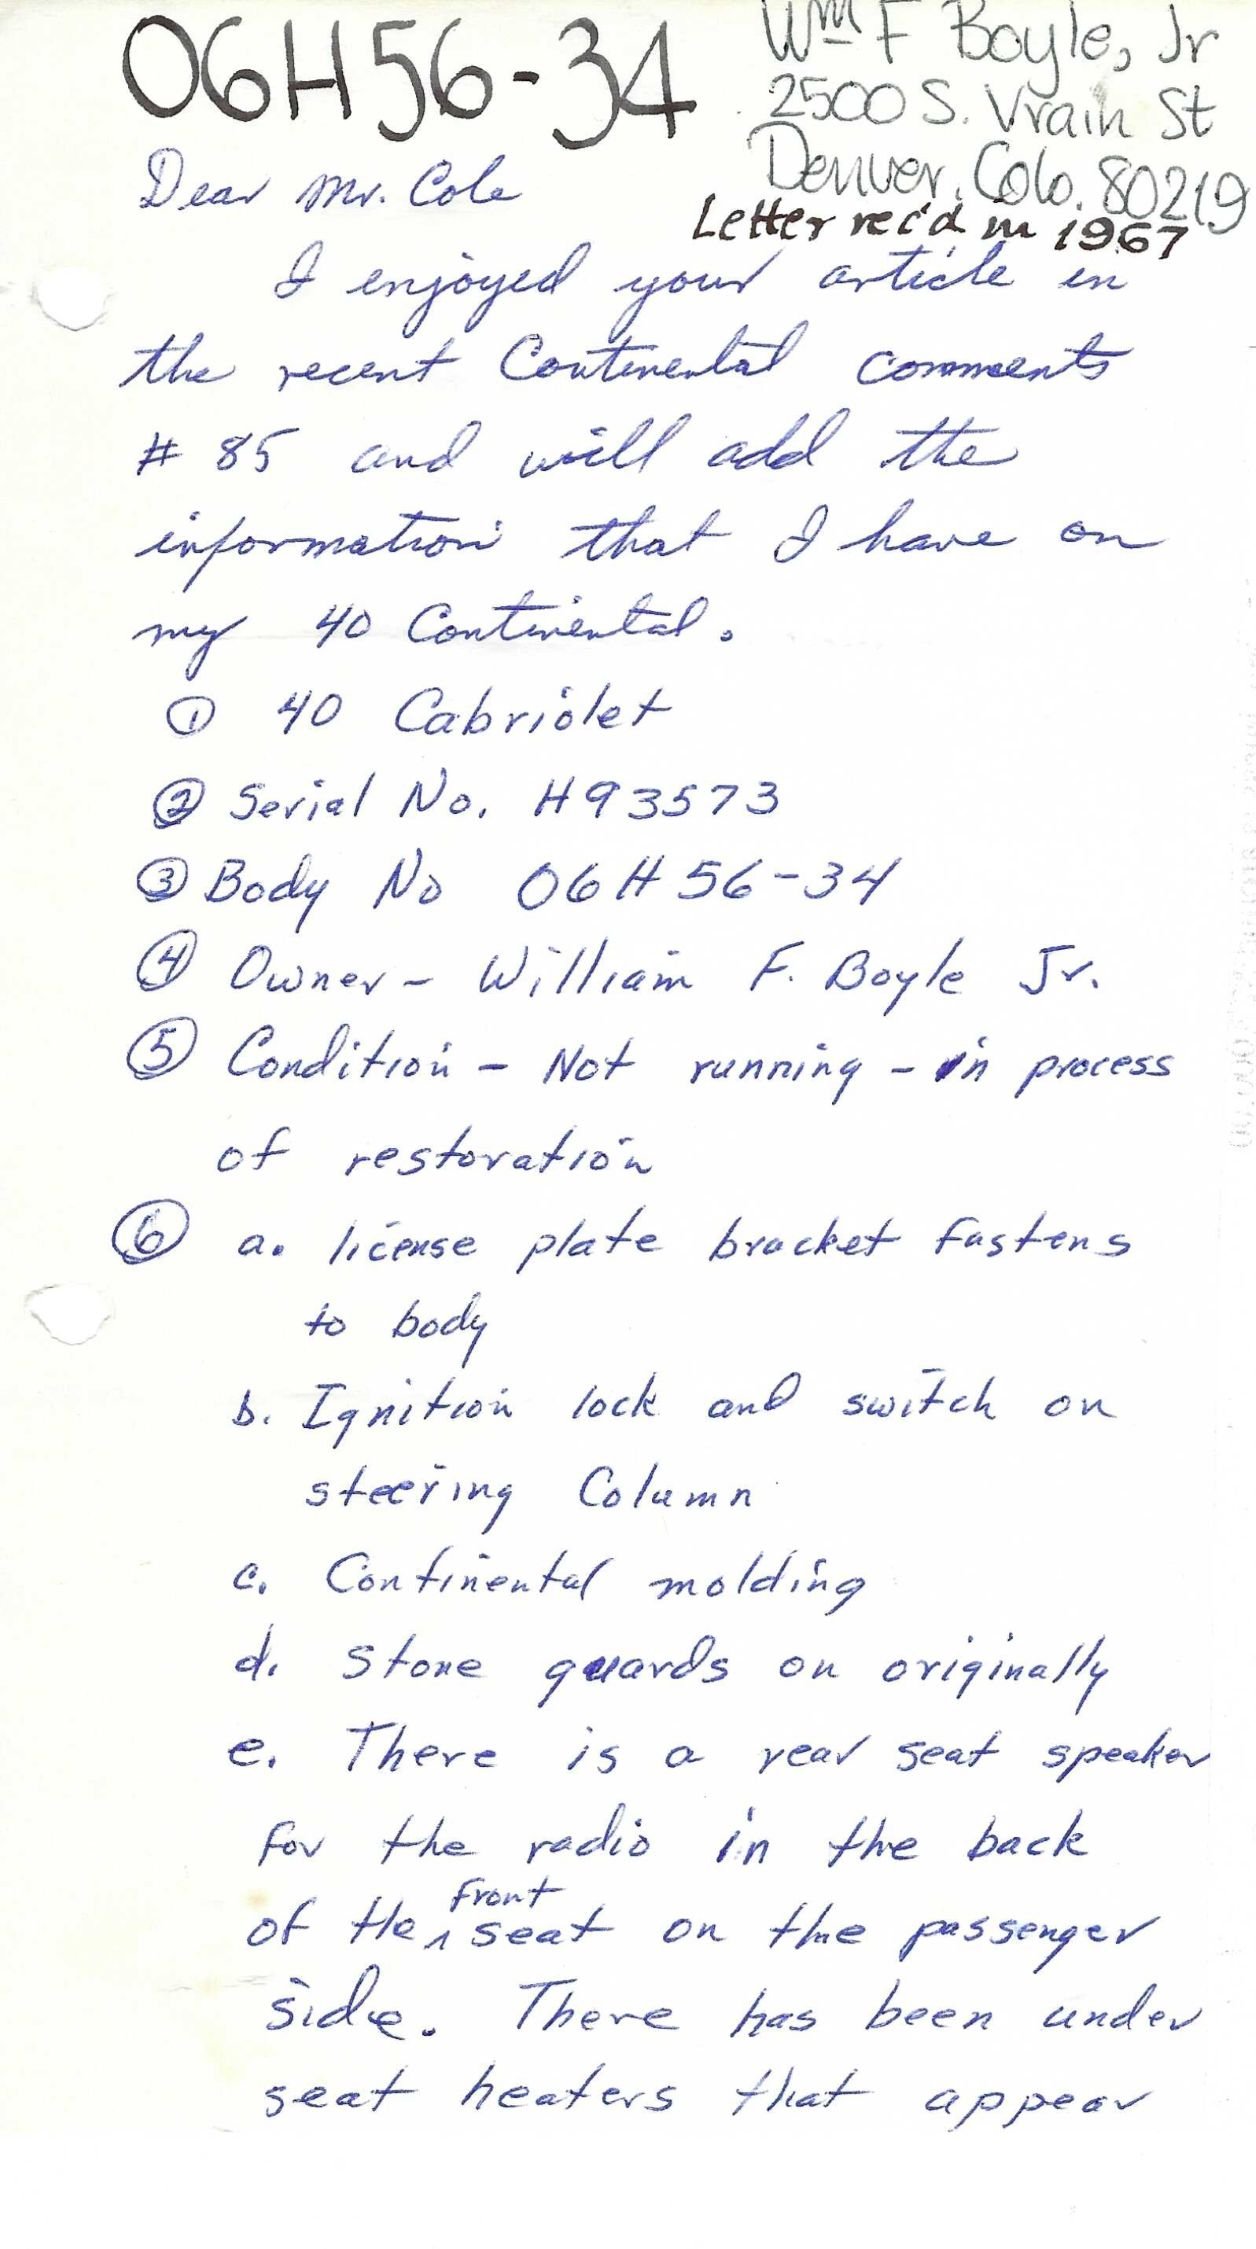 06H56-34
Wm F Boyle, Jr
2500 S. Vrain St
Denver, Colo. 80219
Letter rec'd in 1967
Dear Mr. Cole
I enjoyed your article in
the recent Continental comments
# 85 and will add the
information that I have on
my 40 Continental.
① 40 Cabriolet
② Serial No. H93573
③ Body No 06H56-34
④ Owner - William F. Boyle Jr.
⑤ Condition - Not running - in process
of restoration
⑥ a. license plate bracket fastens
to body
b. Ignition lock and switch on
steering Column
c. Continental molding
d. Stone guards on originally
e. There is a rear seat speaker
for the radio in the back
of the front seat on the passenger
side. There has been under
seat heaters that appear